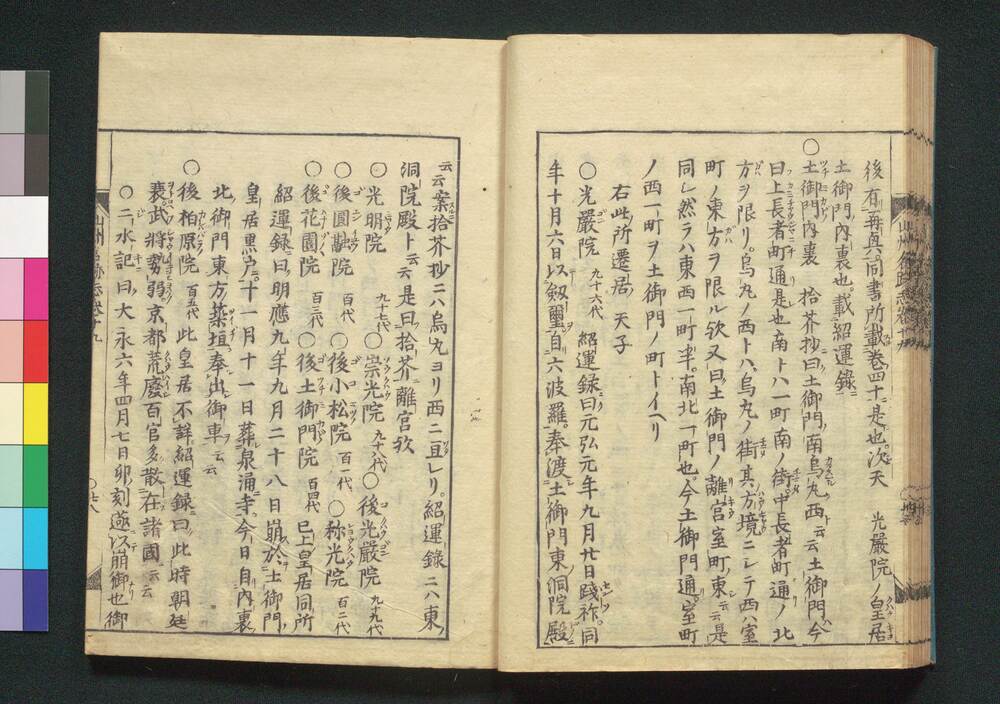 後有再異同書所載卷四十是也次天　光嚴院ノ皇居
土御門內裏也載紹運錄ニ
〇土御門內裏　拾芥抄曰土御門ノ南烏丸ノ西云云土御門ハ今
曰上長者町通是也南トハ一町南ノ街中長者町通ノ北
方ヲ限リ烏丸ノ西トハ烏丸ノ街其方境ニシテ西ハ室
町ノ東方ヲ限ル欤又曰土御門ノ離宮室町ノ東云云是
同シ然ラハ東西一町半南北一町也今土御門通室町
ノ西一町ヲ土御門ノ町トイヘリ
右此所遷居ノ天子
〇光嚴院　九十六代　紹運錄曰元弘元年九月廿日踐祚同
年十月六日以釼璽自六波羅奉渡土御門東洞院殿
云云案拾芥抄ニハ烏丸ヨリ西ニ亘レリ紹運錄ニハ東ノ
洞院殿ト云云是曰拾芥離宮欤
〇光明院　九十七代〇崇光院　九十八代〇後光嚴院　九十九代
〇後圓融院　百代〇後小松院　百一代〇称光院　百二代
〇後花園院　百三代〇後土御門院　百四代　巳上皇居同所
紹運錄曰明應九年九月二十八日崩於土御門ノ
皇居黑戸十一月十一日葬泉涌寺今日自內裏ノ
北御門東方築垣奉出御車云云
〇後柏原院　百五代　此皇居不詳紹運錄曰此時朝廷
衰武將勢弱京都荒廢百官多散在諸國云云
〇二水記曰大永六年四月七日卯刻遂以崩御也御